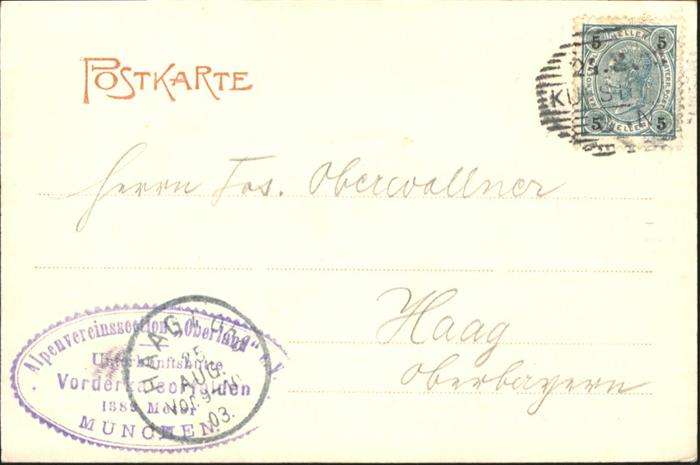 POSTKARTE
5 HELLER 5
5 HELLER 5
Herrn Jos. Oberwallner
Haag
Oberbayern
Alpenvereinssection „Oberland" e.V.
Unterkunftshütte
Vorderkaiserfelden
1389 Meter
MÜNCHEN.
HAAG
25
AUG.
03.